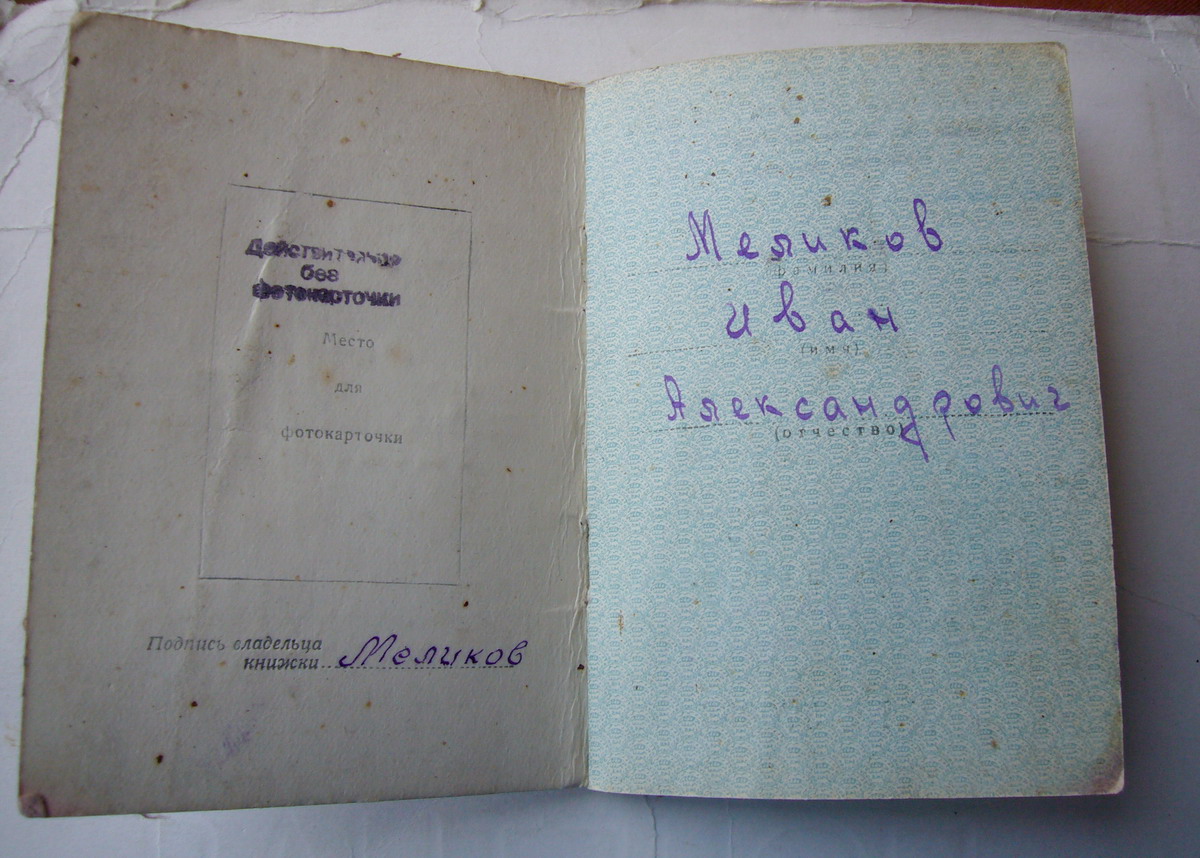 Действительно
без
фотокарточки
Место
для
фотокарточки
Подпись владельца
книжки Меликов
Меликов
(фамилия)
Иван
(имя)
Александрович
(отчество)